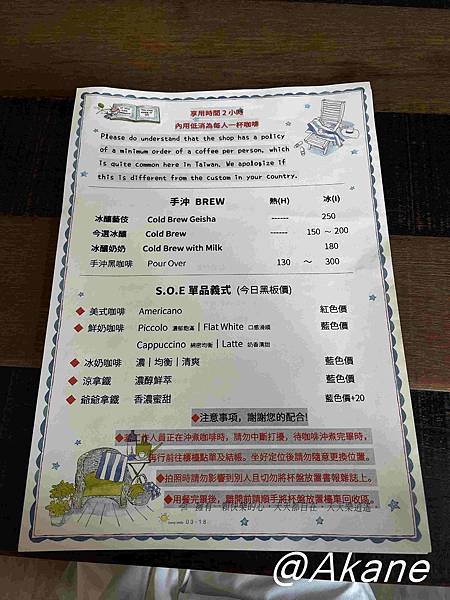 享用時間 2 小時
內用低消為每人一杯咖啡
Please do understand that the shop has a policy
of a minimum order of a coffee per person, which
is quite common here in Taiwan. We apologize if
this is different from the custom in your country.
手沖 BREW 熱(H) 冰(I)
冰釀藝伎 Cold Brew Geisha ------ 250
今選冰釀 Cold Brew ------ 150 ~ 200
冰釀奶奶 Cold Brew with Milk 180
手沖黑咖啡 Pour Over 130 ~ 300
S.O.E 單品義式 (今日黑板價)
美式咖啡 Americano 紅色價
鮮奶咖啡 Piccolo 濃郁飽滿 | Flat White 口感滑順 藍色價
Cappuccino 綿密均衡 | Latte 奶香濱甜
冰奶咖啡 濃 | 均衡 | 清爽 藍色價
涼拿鐵 濃醇鮮萃 藍色價
爺爺拿鐵 香濃蜜甜 藍色價+20
注意事項，謝謝您的配合!
若工作人員正在沖煮咖啡時，請勿中斷打擾，待咖啡沖煮完畢時，
再行前往櫃檯點單及結帳。坐好定位後請勿隨意更換位置。
拍照時請勿影響到別人且切勿將杯盤放置書報雜誌上。
用餐完畢後，離開前請順手將杯盤放置檯車回收區。
擁有一顆快樂的心，天天都自在，天天樂逍遙
03-18
@Akane